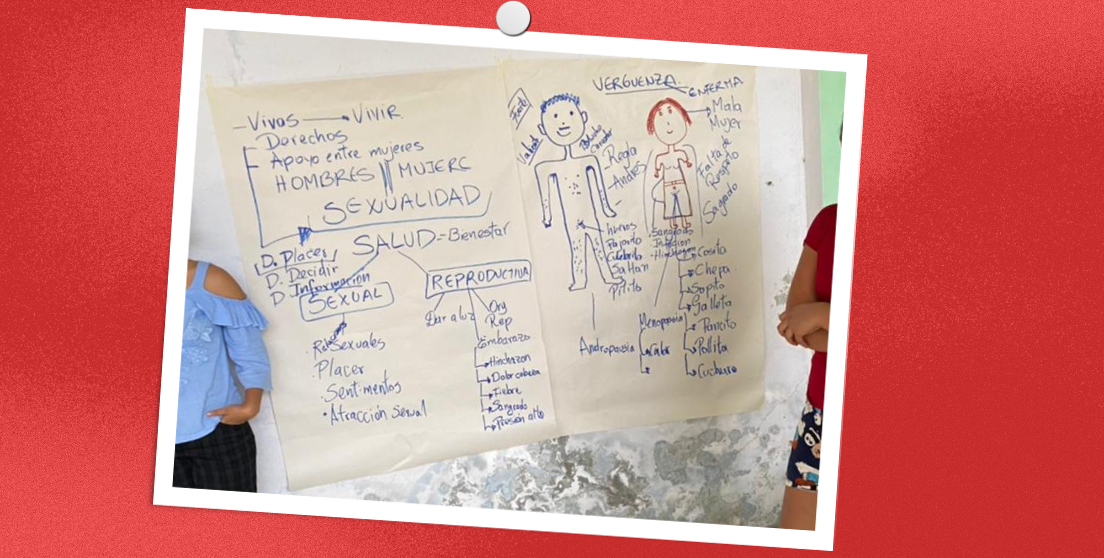 - Vivas → VIVIR
Derechos
Apoyo entre mujeres
HOMBRES || MUJERE
SEXUALIDAD
SALUD = Bienestar
D. Placer
D. Decidir
D. Informacion
SEXUAL
Rel Sexuales
Placer
Sentimentos
Atracción Sexual
REPRODUCTIVA
Dar a luz
Org
Rep
Embarazo
Hinchazon
Dolor cabeza
Fiebre
Sangrado
Presión alta
VERGUENZA
ENFERMA
Mala
Mujer
Falta de
Respeto
Sagrado
Fuerte
Valiente
- Regla
- Andres
huevos
Pajarito
Culebrita
Pitito
Andropausia
Sangrado
Infeccion
Menopausia
Calor
Cosita
Chepa
Sapito
Galleta
Pollita
Cuchara